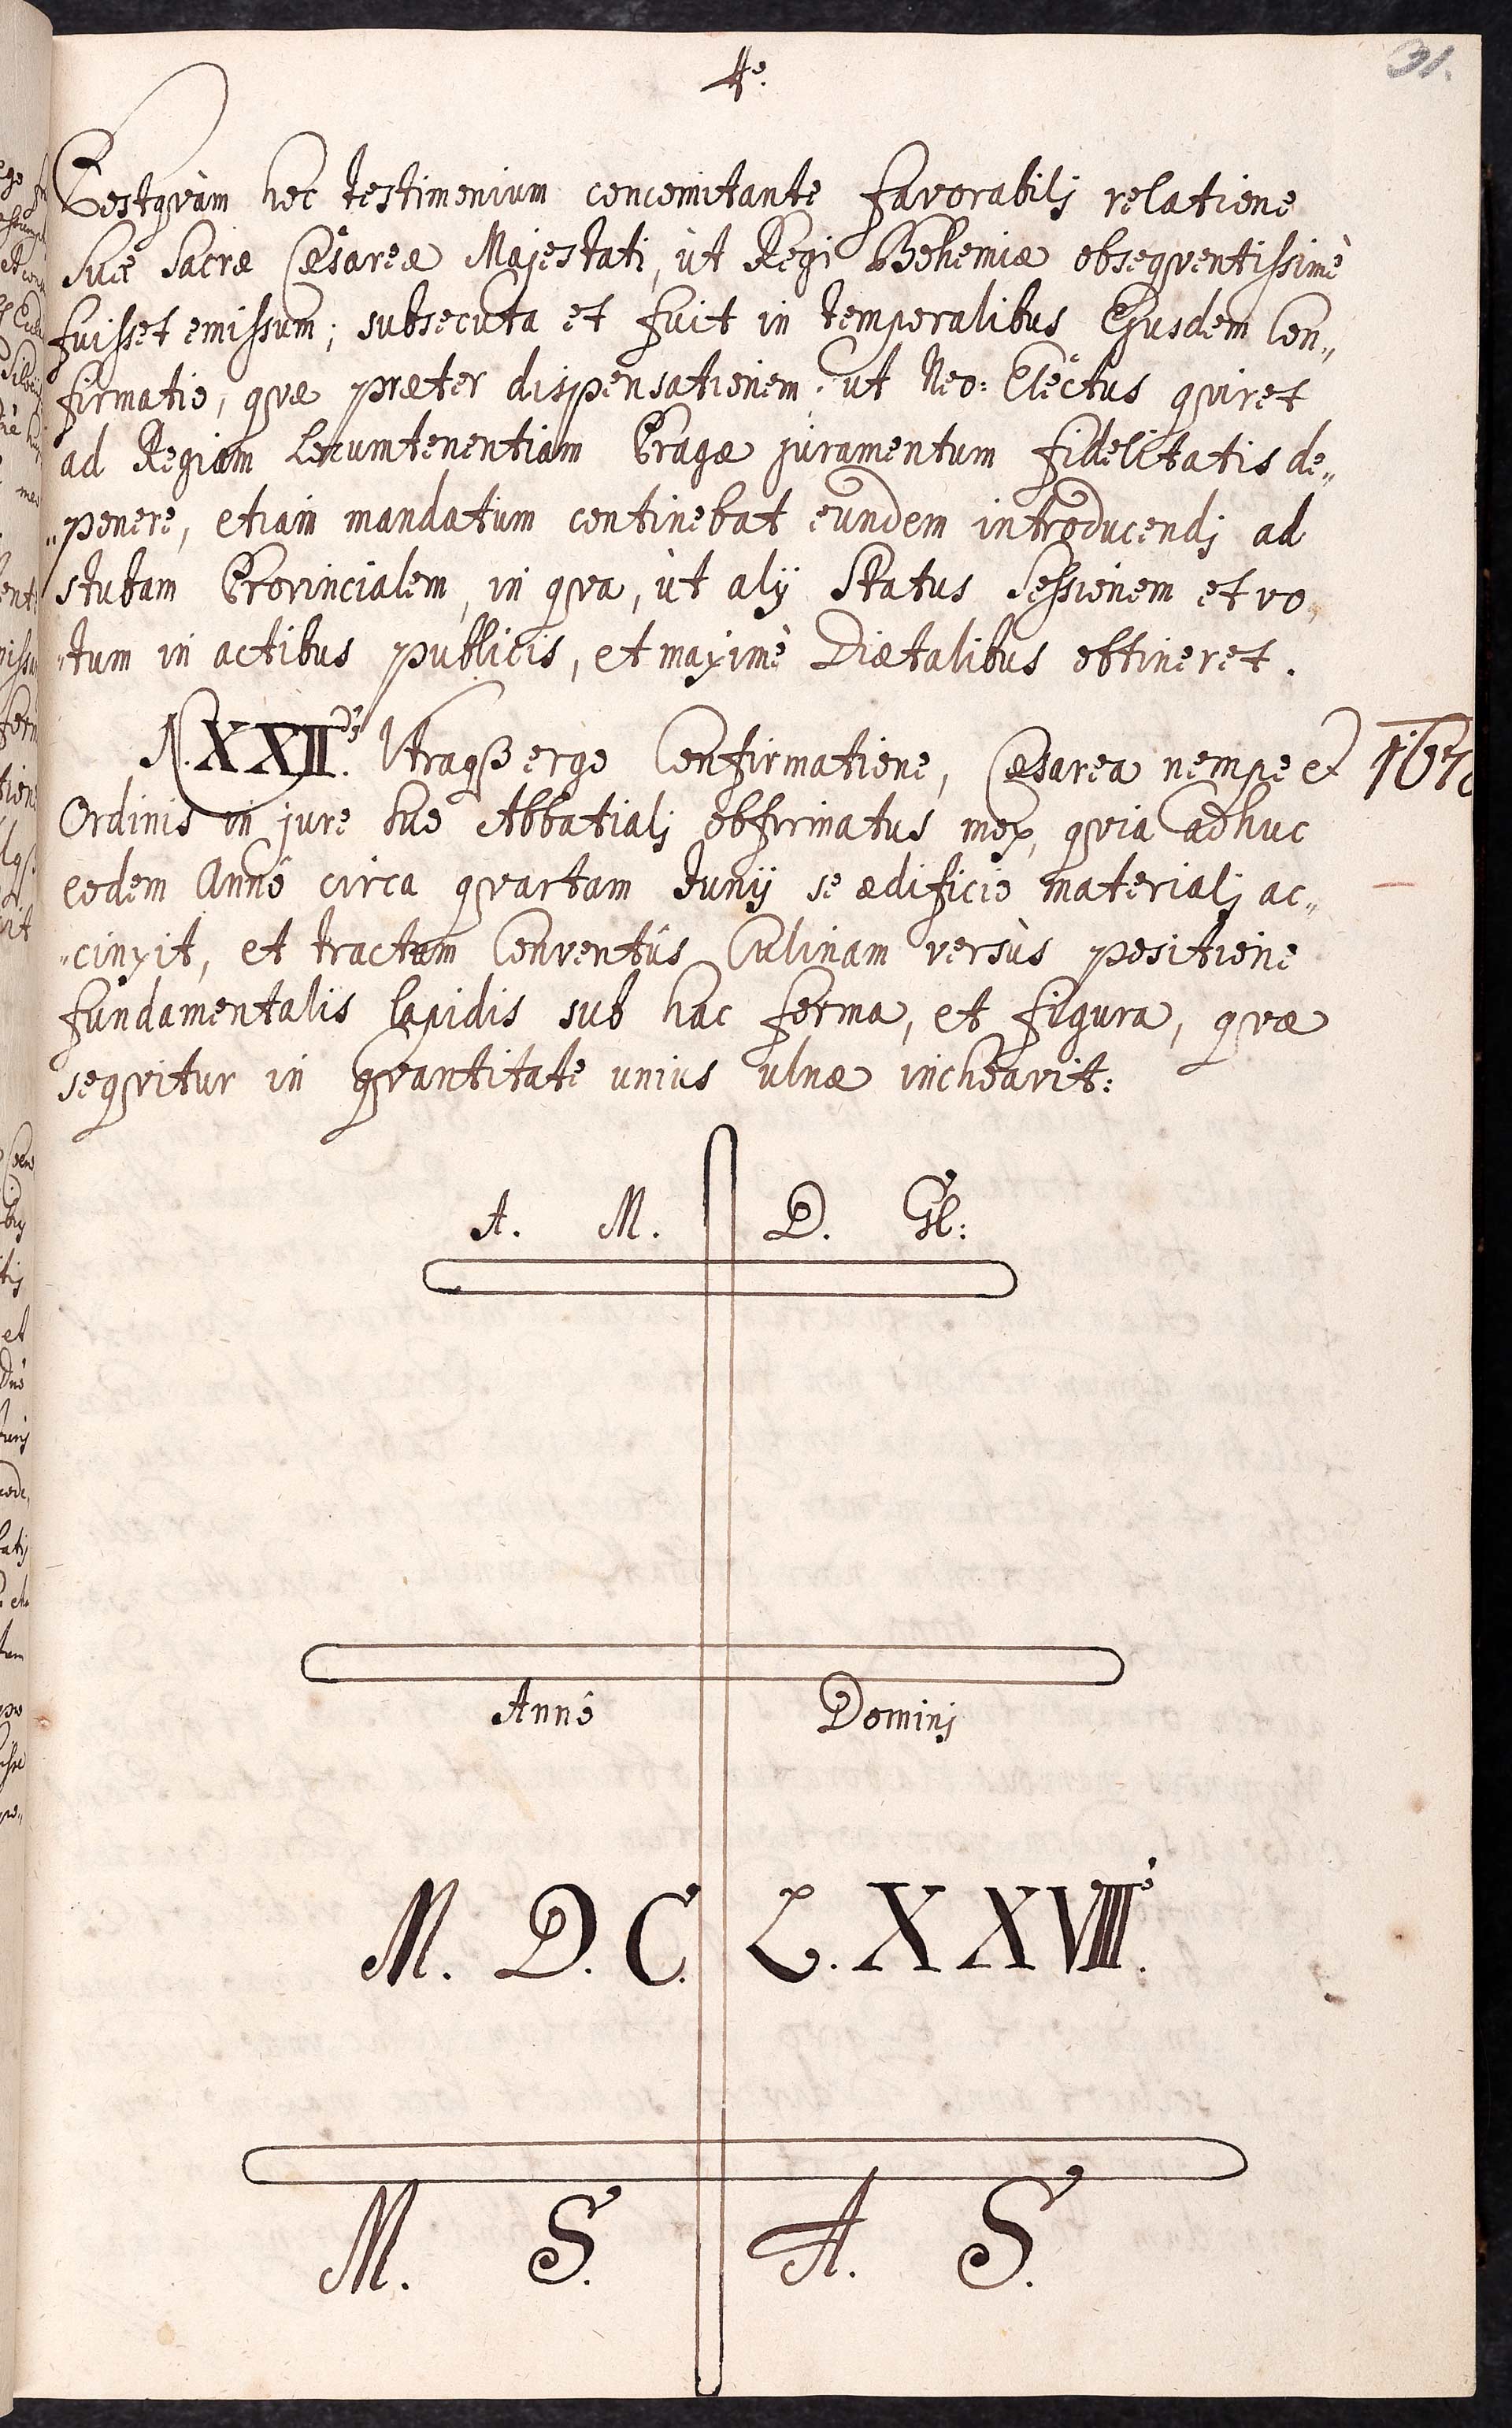 4º.
31.
Postqvàm hoc testimonium concomitante favorabilj relatione
Suæ Sacræ Cæsareæ Majestati, ùt Regi Bohemiæ obseqventissimè
fuisset emissum; subsecuta et fuit in temporalibus Ejusdem Con„
firmatio, qvæ præter dispensationem, ut Neo: Electus qviret
ad Regiam Locumtenentiam Pragæ juramentum fidelitatis de„
„ponere, etiam mandatum continebat eundem introducendj ad
stubam Provincialem, in qva, ùt alij Status Sessionem et vo„
„tum in actibus publicis, et maximè Diætalibus obtineret.
N. XXIIdò. Utraqꝫ ergo Confirmatione, Cæsarea nempe et
1678
Ordinis in jure suo Abbatialj obfirmatus mox, qvia adhuc
eodem Annô circa qvartam Junij se ædificio materialj ac„
„cinxit, et tractum Conventûs Culinam versùs positione
fundamentalis lapidis sub hac forma, et figura, qvæ
seqvitur in qvantitate unius ulnæ inchoavit:
A. M. D. Gl:
Annô Dominj
M. D. C. L. X X VIIIº.
M. S. A. S.